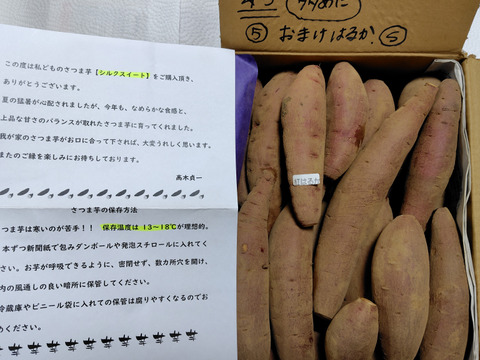 この度は私どものさつま芋【シルクスイート】をご購入頂き、
ありがとうございます。
夏の猛暑が心配されましたが、今年も、なめらかな食感と、
上品な甘さのバランスが取れたさつま芋に育ってくれました。
我が家のさつま芋がお口に合って下されば、大変うれしく思います。
またのご縁を楽しみにお待ちしております。
高木貞一
さつま芋の保存方法
つま芋は寒いのが苦手！！ 保存温度は 13～18℃が理想的。
本ずつ新聞紙で包みダンボールや発泡スチロールに入れてく
さい。お芋が呼吸できるように、密閉せず、数カ所穴を開け、
内の風通しの良い暗所に保管してください。
冷蔵庫やビニール袋に入れての保管は腐りやすくなるのでお
めください。
少なめに
⑤ おまけはるか. Ⓢ
紅はるか